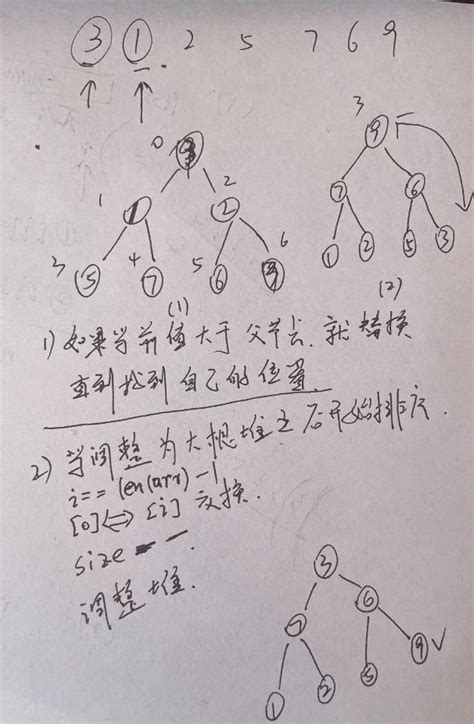 3 1 . 2 5 7 6 9
0
1 2
2
3 4 5 6
5 7 6 9
(1)
3
9
7 6
1 2 5 3
(2)
1) 如果当前值大于父节点. 就替换
直到找到自己的位置.
2) 当调整为大根堆之后开始排序.
i == len(arr) - 1
[0] <=> [i] 交换.
size - -
调整堆.
3
7 6
1 2 5 9